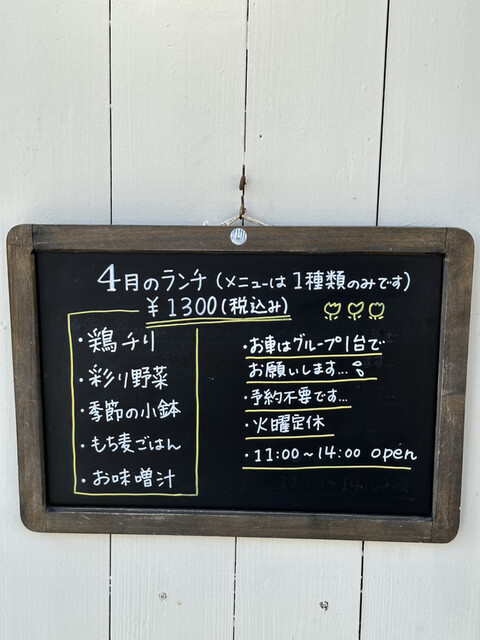 4月のランチ(メニューは1種類のみです)
¥1300(税込み)
・鶏チリ
・彩り野菜
・季節の小鉢
・もち麦ごはん
・お味噌汁
・お車はグループ1台で
お願いします...
・予約不要です...
・火曜定休
・11:00~14:00 open